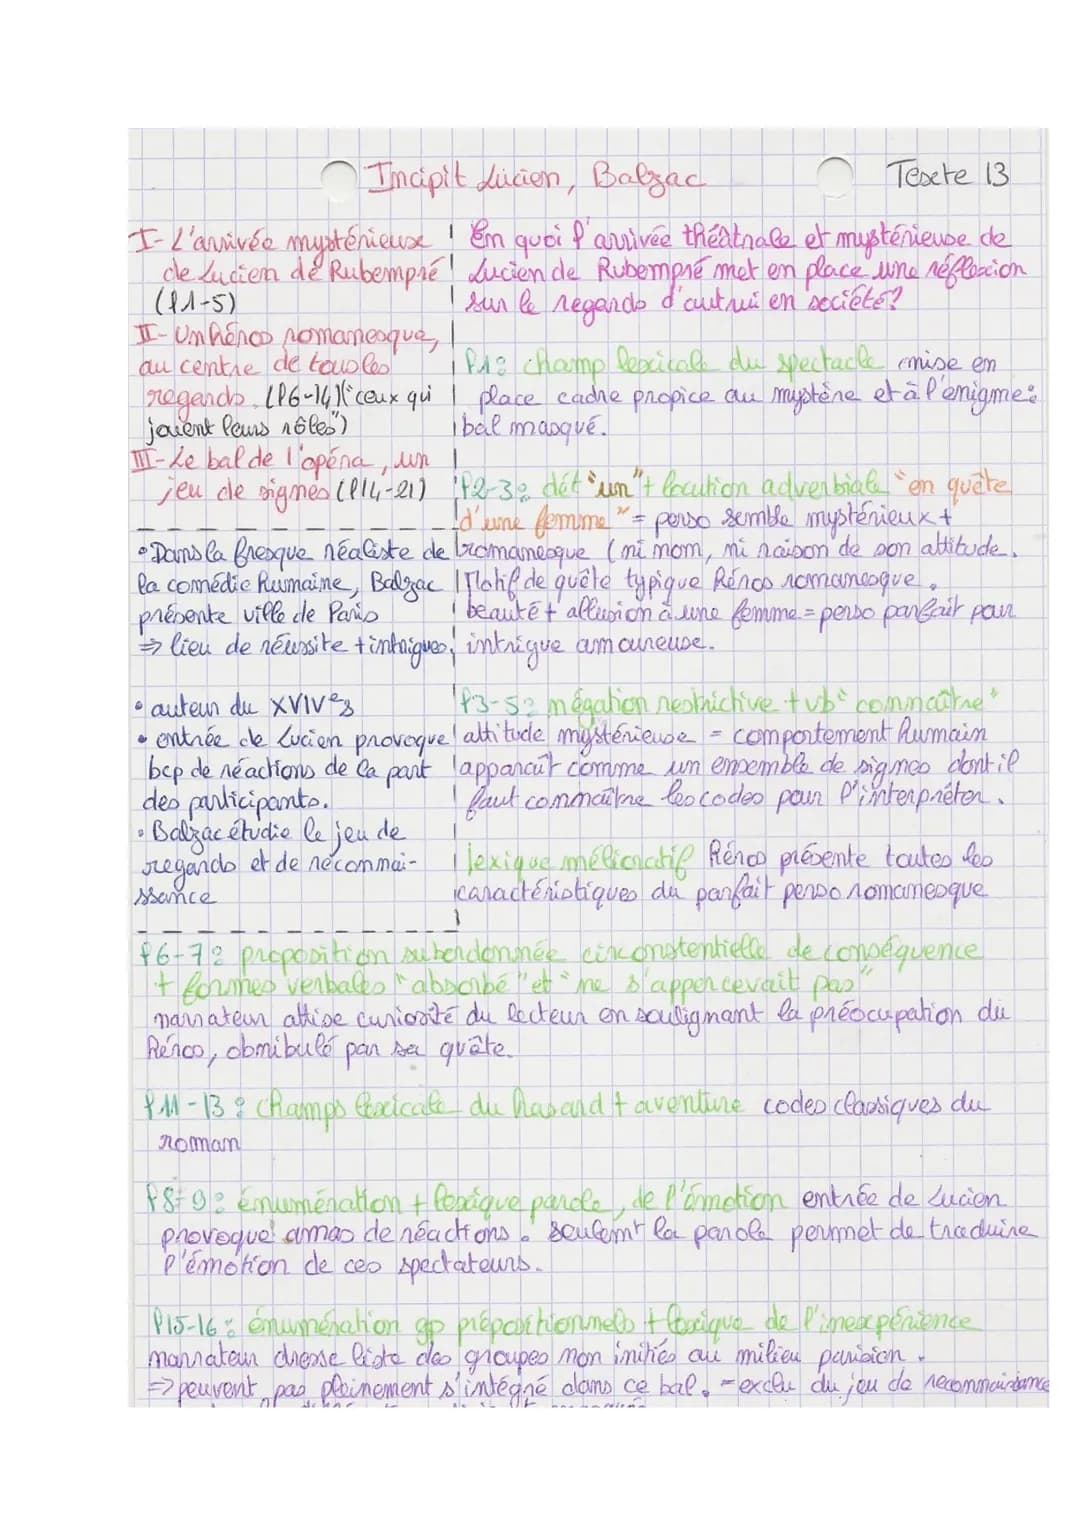 Incipit Lucien, Balzac
Texte 13
I- L'arrivée mystérieuse
de Lucien de Rubempré
(l1-5)
II- Un héros romanesque,
au centre de tous les
regards. (l6-14) ("ceux qui
jouent leurs rôles")
III- Le bal de l'opéra, un
jeu de signes (l14-21)
• Dans la fresque réaliste de
la comédie humaine, Balzac
présente ville de Paris
⇒ lieu de réussite + intrigues.
• auteur du XVIVe s
• entrée de Lucien provoque
bcp de réactions de la part
des participants.
• Balzac étudie le jeu de
regards et de reconnai-
ssance
En quoi l'arrivée théâtrale et mystérieuse de
Lucien de Rubempré met en place une réflexion
sur le regards d'autrui en société?
l1: champ lexicale du spectacle mise en
place cadre propice au mystère et à l'énigme:
bal masqué.
l2-3: dét "un" + locution adverbiale "en quête
d'une femme" = perso semble mystérieux +
romanesque (ni nom, ni raison de son attitude.
Motif de quête typique héros romanesque.
beauté + allusion à une femme = perso parfait pour
intrigue amoureuse.
l3-5: négation restrictive + vb "connaître"
attitude mystérieuse = comportement humain
apparaît comme un ensemble de signes dont il
faut connaître les codes pour l'interpréter.
lexique mélioratif héros présente toutes les
caractéristiques du parfait perso romanesque
l6-7: proposition subordonnée circonstentielle de conséquence
+ formes verbales "absorbé" et "ne s'appercevait pas"
narrateur attise curiosité du lecteur en soulignant la préocupation du
héros, obnibulé par sa quête.
l11-13: champs lexicale du hasard + aventure codes classiques du
roman
l8-9: énumération + lexique parole, de l'émotion entrée de Lucien
provoque amas de réactions. seulemt la parole permet de traduire
l'émotion de ces spectateurs.
l15-16: énumération gp prépositionnels + lexique de l'inexpérience
narrateur dresse liste des groupes non initiés au milieu parisien.
⇒ peuvent pas pleinement s'intégré dans ce bal. = exclu du jeu de reconnaissance